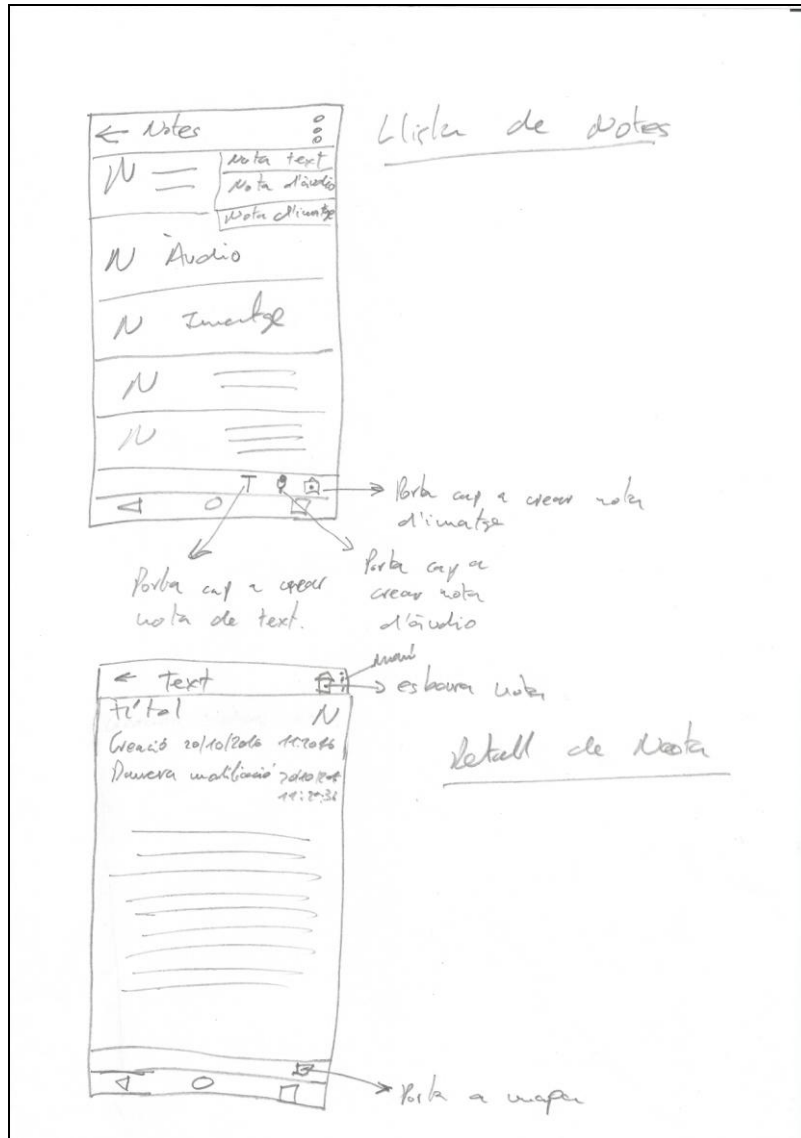 ← Notes
Llista de Notes
N
Nota text
Nota d'àudio
Nota d'imatge
N Àudio
N Imatge
N
N
T
Porta cap a crear nota
d'imatge
Porta cap a crear
nota de text.
Porta cap a
crear nota
d'àudio
menú
← Text
esborra nota
Títol N
Creació 20/10/2016
Darrera modificació
Detall de Nota
Porta a mapa